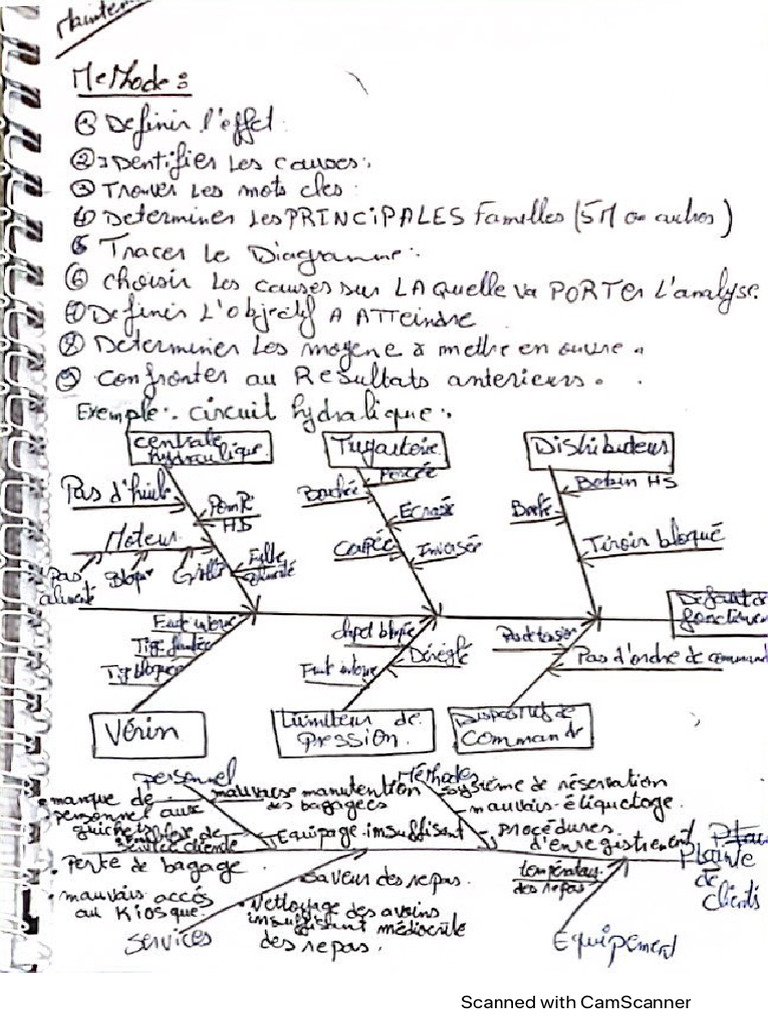 Methode :
① Definir l'effet
② : Dentifier Les causes :
③ Trouver Les mots cles :
④ Determiner les PRINCIPALES Familles (5M ou autres)
⑤ Tracer le Diagramme :
⑥ choisir Les causes sur LAquelle va PORTer L'analyse.
⑦ Definir L'objectif A ATTeindre
⑧ Determiner Les moyene a mettre en ouvre.
⑨ Confronter au Resultats anterieurs.
Exemple : circuit hydralique :
centrale hydraulique
Distributeur
Pas d'huile
Pompe HS
Moteur
Pas alimenté
Bouchée
Percée
Ecrasé
Bobin HS
Tiroir bloqué
Fuit interne
Tige bloquée
Vérin
clapet bloqué
Déréglé
Fuit interne
Limiteur de Pression
Pas de tension
Pas d'ordre de command
Dispositif de Commande
Personnel
manque de personnel aux guichets
mauvaise manutention des bagages
Equipage insuffisant
Méthodes
système de réservation
mauvais étiquetage.
Procédures d'enregistrement
Plainte de clients
Perte de bagage
mauvais accés au Kiosque.
services
saveur des repas.
Nettoyage des avoins insuffisant médiocrité des repas.
température des repas
Equipement
Scanned with CamScanner